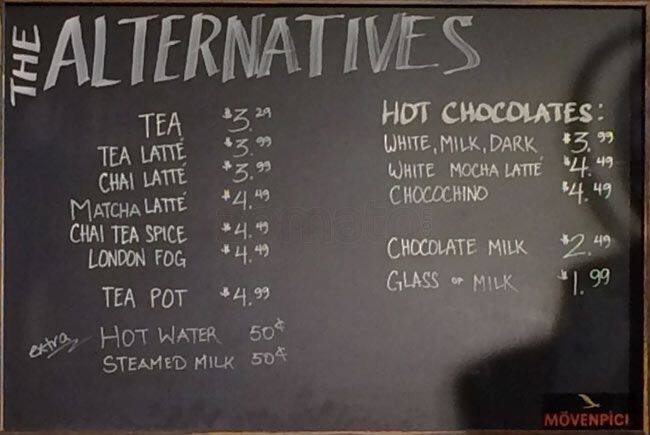 THE ALTERNATIVES
TEA $3.29
TEA LATTÉ $3.99
CHAI LATTÉ $3.99
MATCHA LATTÉ $4.49
CHAI TEA SPICE $4.49
LONDON FOG $4.49
TEA POT $4.99
extra HOT WATER 50¢
STEAMED MILK 50¢
HOT CHOCOLATES:
WHITE, MILK, DARK $3.99
WHITE MOCHA LATTÉ $4.49
CHOCOCHINO $4.49
CHOCOLATE MILK $2.49
GLASS OF MILK $1.99
MÖVENPICI